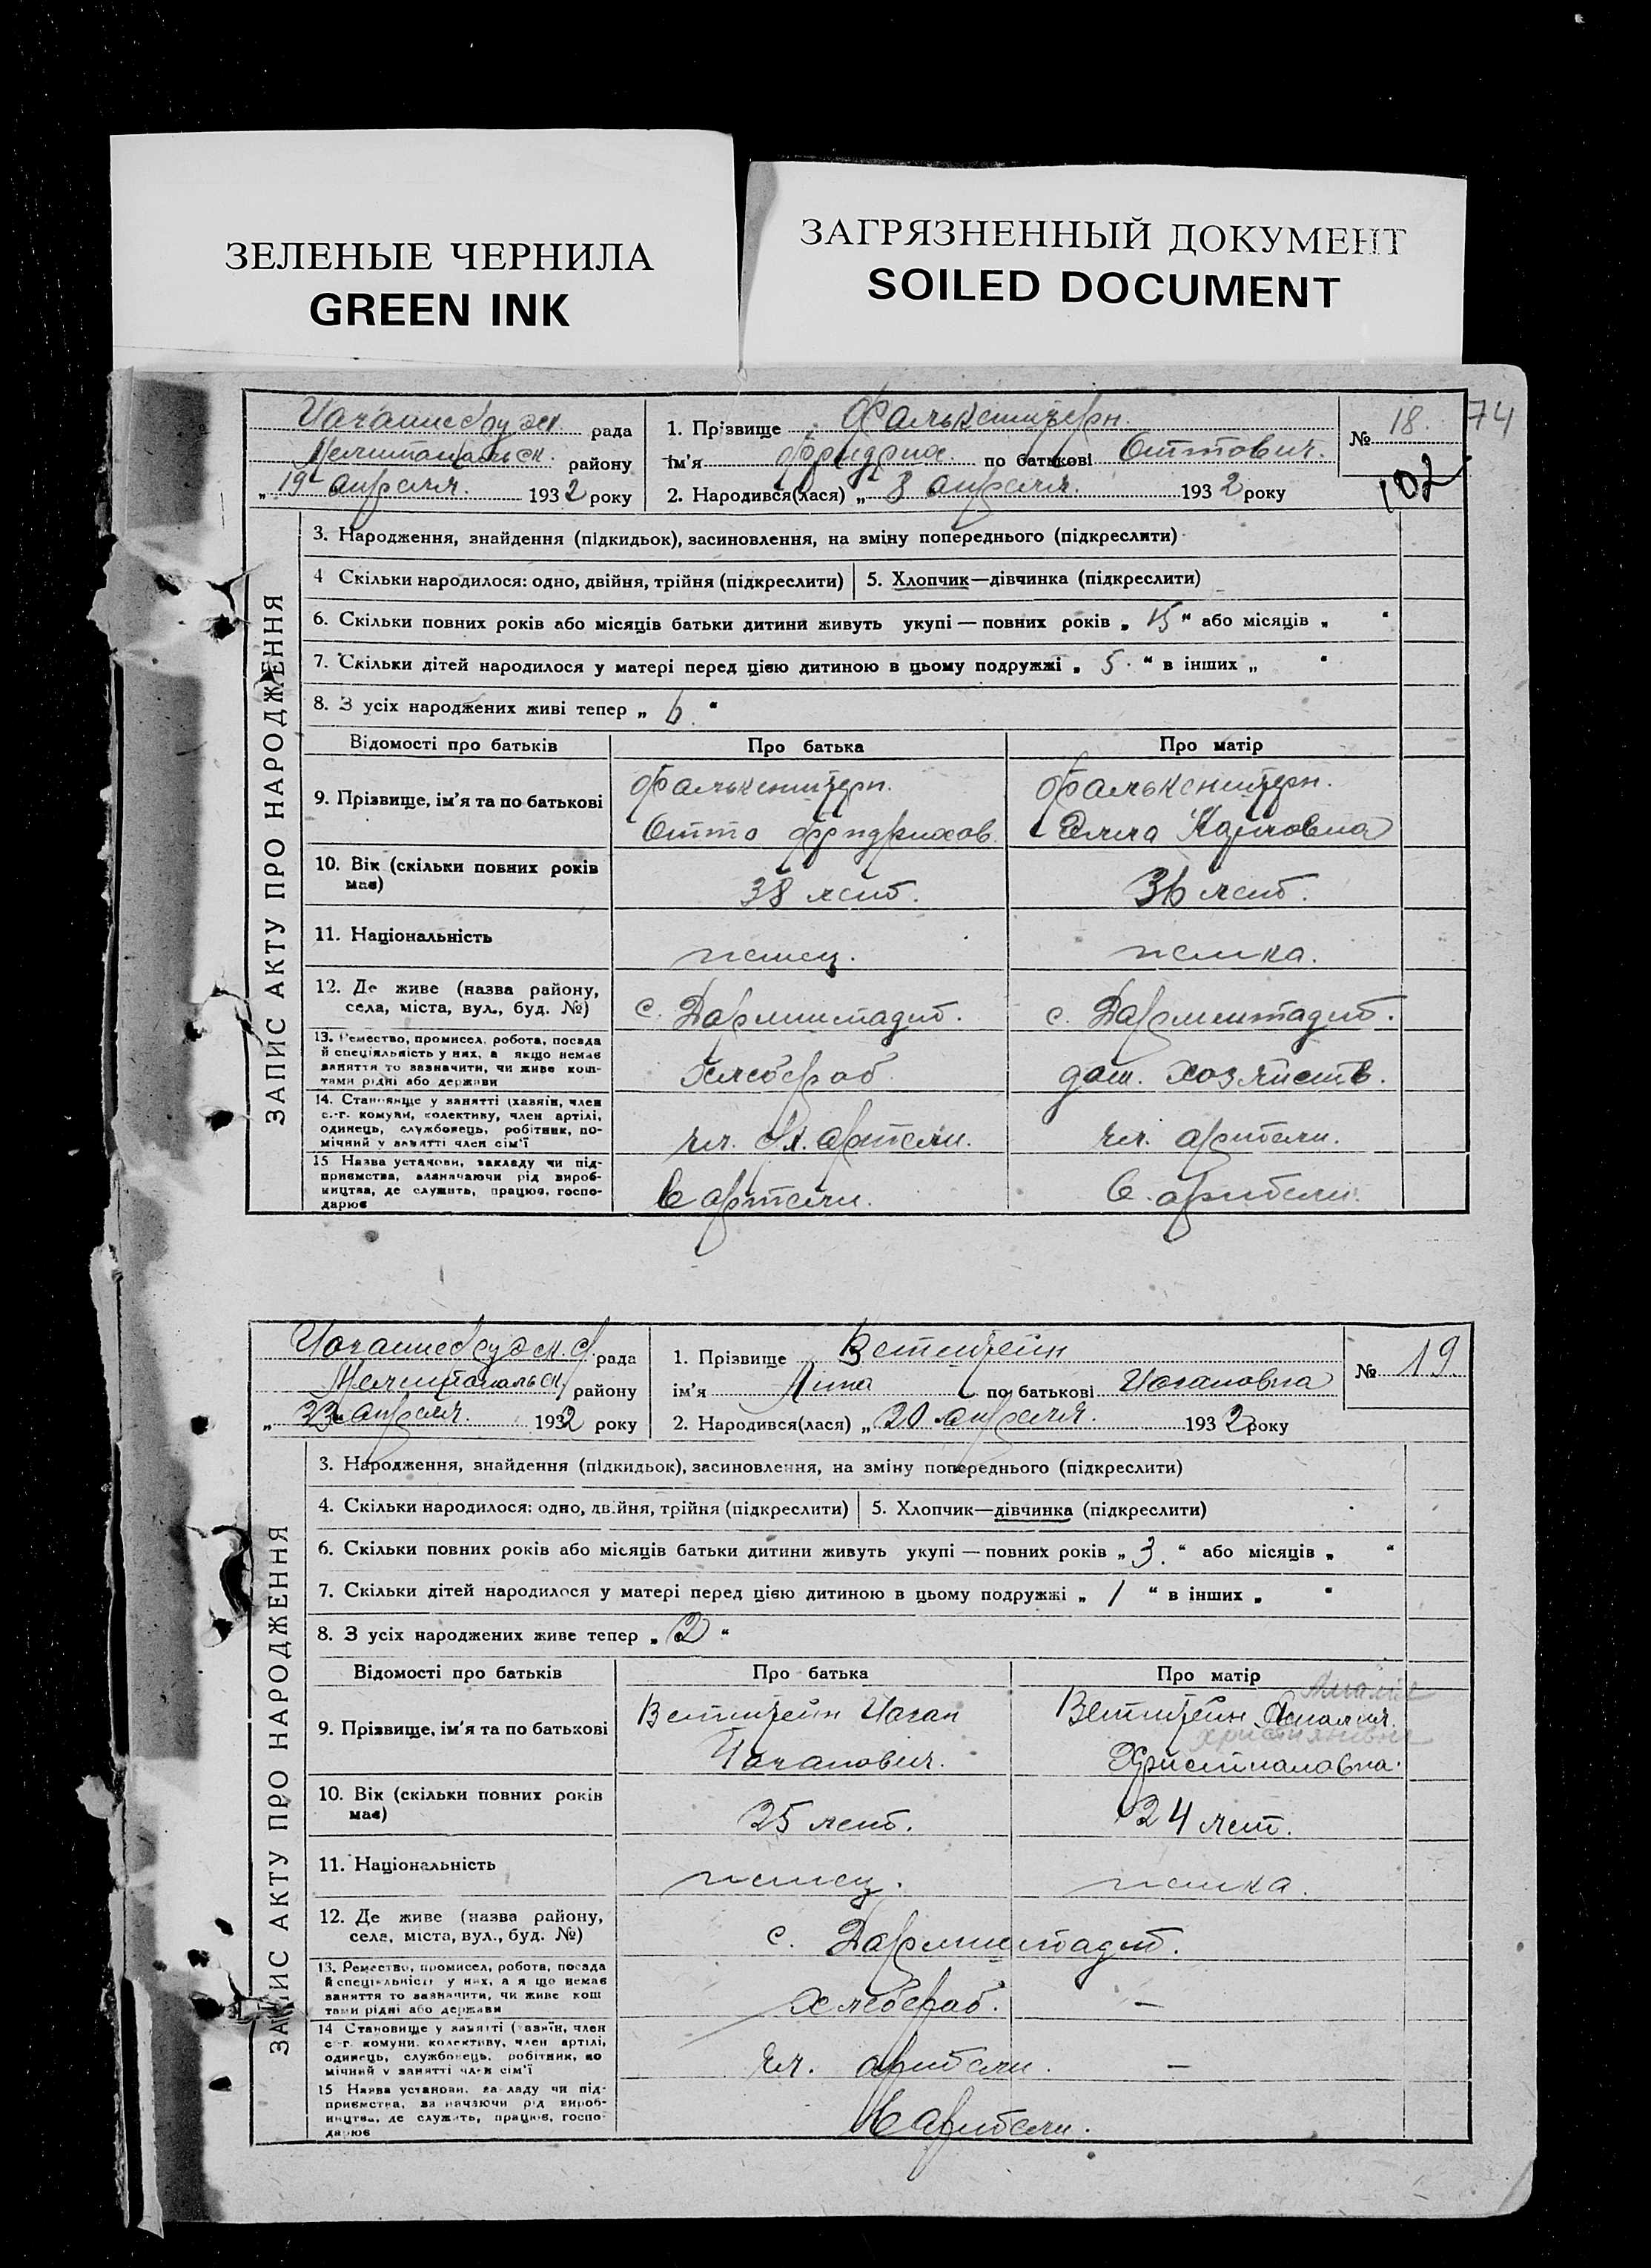 ЗЕЛЕНЫЕ ЧЕРНИЛА
GREEN INK
ЗАГРЯЗНЕННЫЙ ДОКУМЕНТ
SOILED DOCUMENT
74
рада
района
Мелитопальск. району
„19" апреля. 1932 року
1. Прізвище Фалькштерн.
ім'я Фридрих. по батькові Оттович.
2. Народився(лася) „3 апреля. 1932 року
№ 18.
102
ЗАПИС АКТУ ПРО НАРОДЖЕННЯ
3. Народження, знайдення (підкидьок), засиновлення, на зміну попереднього (підкреслити)
4 Скільки народилося: одно, двійня, трійня (підкреслити) 5. Хлопчик—дівчинка (підкреслити)
6. Скільки повних років або місяців батьки дитини живуть укупі — повних років „ 15 " або місяців „ "
7. Скільки дітей народилося у матері перед цією дитиною в цьому подружжі „ 5. " в інших „ "
8. З усіх народжених живі тепер „ 6. "
Відомості про батьків Про батька Про матір
9. Прізвище, ім'я та по батькові
Фалькенштерн. Фалькенштерн.
Отто Фридрихов. Карловна
10. Вік (скільки повних років має)
38 лет. 36 лет.
11. Національність
немец. немка.
12. Де живе (назва району, села, міста, вул., буд. №)
с. Дармштадт. с. Дармштадт.
13. Ремество, промисел, робота, посада
й спеціяльність у них, а якщо немає
заняття то зазначити, чи живе кош-
тами рідні або держави
хлебороб дом. хозяйств.
14. Становище у занятті (хазяїн, член
с.-г. комуни, колективу, член артілі,
одинець, службовець, робітник, по-
мічний у занятті член сім'ї
чл. артели. чл. артели.
15 Назва установи, закладу чи під-
приємства, зазначаючи рід вироб-
ництва, де служить, працює, госпо-
дарює
в артели. в артели.
рада
Мелитопальск. району
„23" апреля. 1932 року
1. Прізвище Ветштейн
ім'я по батькові Иогановна
2. Народився(лася) „20 апреля. 1932 року
№ 19.
ЗАПИС АКТУ ПРО НАРОДЖЕННЯ
3. Народження, знайдення (підкидьок), засиновлення, на зміну попереднього (підкреслити)
4. Скільки народилося: одно, двійня, трійня (підкреслити) 5. Хлопчик—дівчинка (підкреслити)
6. Скільки повних років або місяців батьки дитини живуть укупі — повних років „ 3. " або місяців „ "
7. Скільки дітей народилося у матері перед цією дитиною в цьому подружжі „ 1 " в інших „ "
8. З усіх народжених живе тепер „ 2 "
Відомості про батьків Про батька Про матір
Амалія
9. Прізвище, ім'я та по батькові
Ветштейн Иоган Ветштейн Амалия.
Християнівна
Иоганович. Християновна.
10. Вік (скільки повних років має)
25 лет. 24 лет.
11. Національність
немец. немка.
12. Де живе (назва району, села, міста, вул., буд. №)
с. Дармштадт.
13. Ремество, промисел, робота, посада
й спеціяльність у них, а якщо немає
заняття то зазначити, чи живе кош
тами рідні або держави
хлебороб. —
14 Становище у занятті (хазяїн, член
с-г. комуни, колективу, член артілі,
одинець, службовець, робітник, по
мічний у занятті член сім'ї
чл. артели. —
15 Назва установи, закладу чи під-
приємства, зазначаючи рід вироб-
ництва, де служить, працює, госпо-
дарює
в артели.